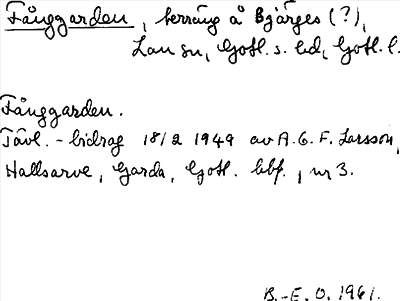 Fånggarden, terräng å Bjärges (?),
Lau sn, Gotl. s. hd, Gotl. l.
Fånggarden.
Tävl. - bidrag 18/2 1949 av A. G. F. Larsson,
Hallsarve, Garda, Gotl. bbf., nr 3.
B.-E. O. 1961.